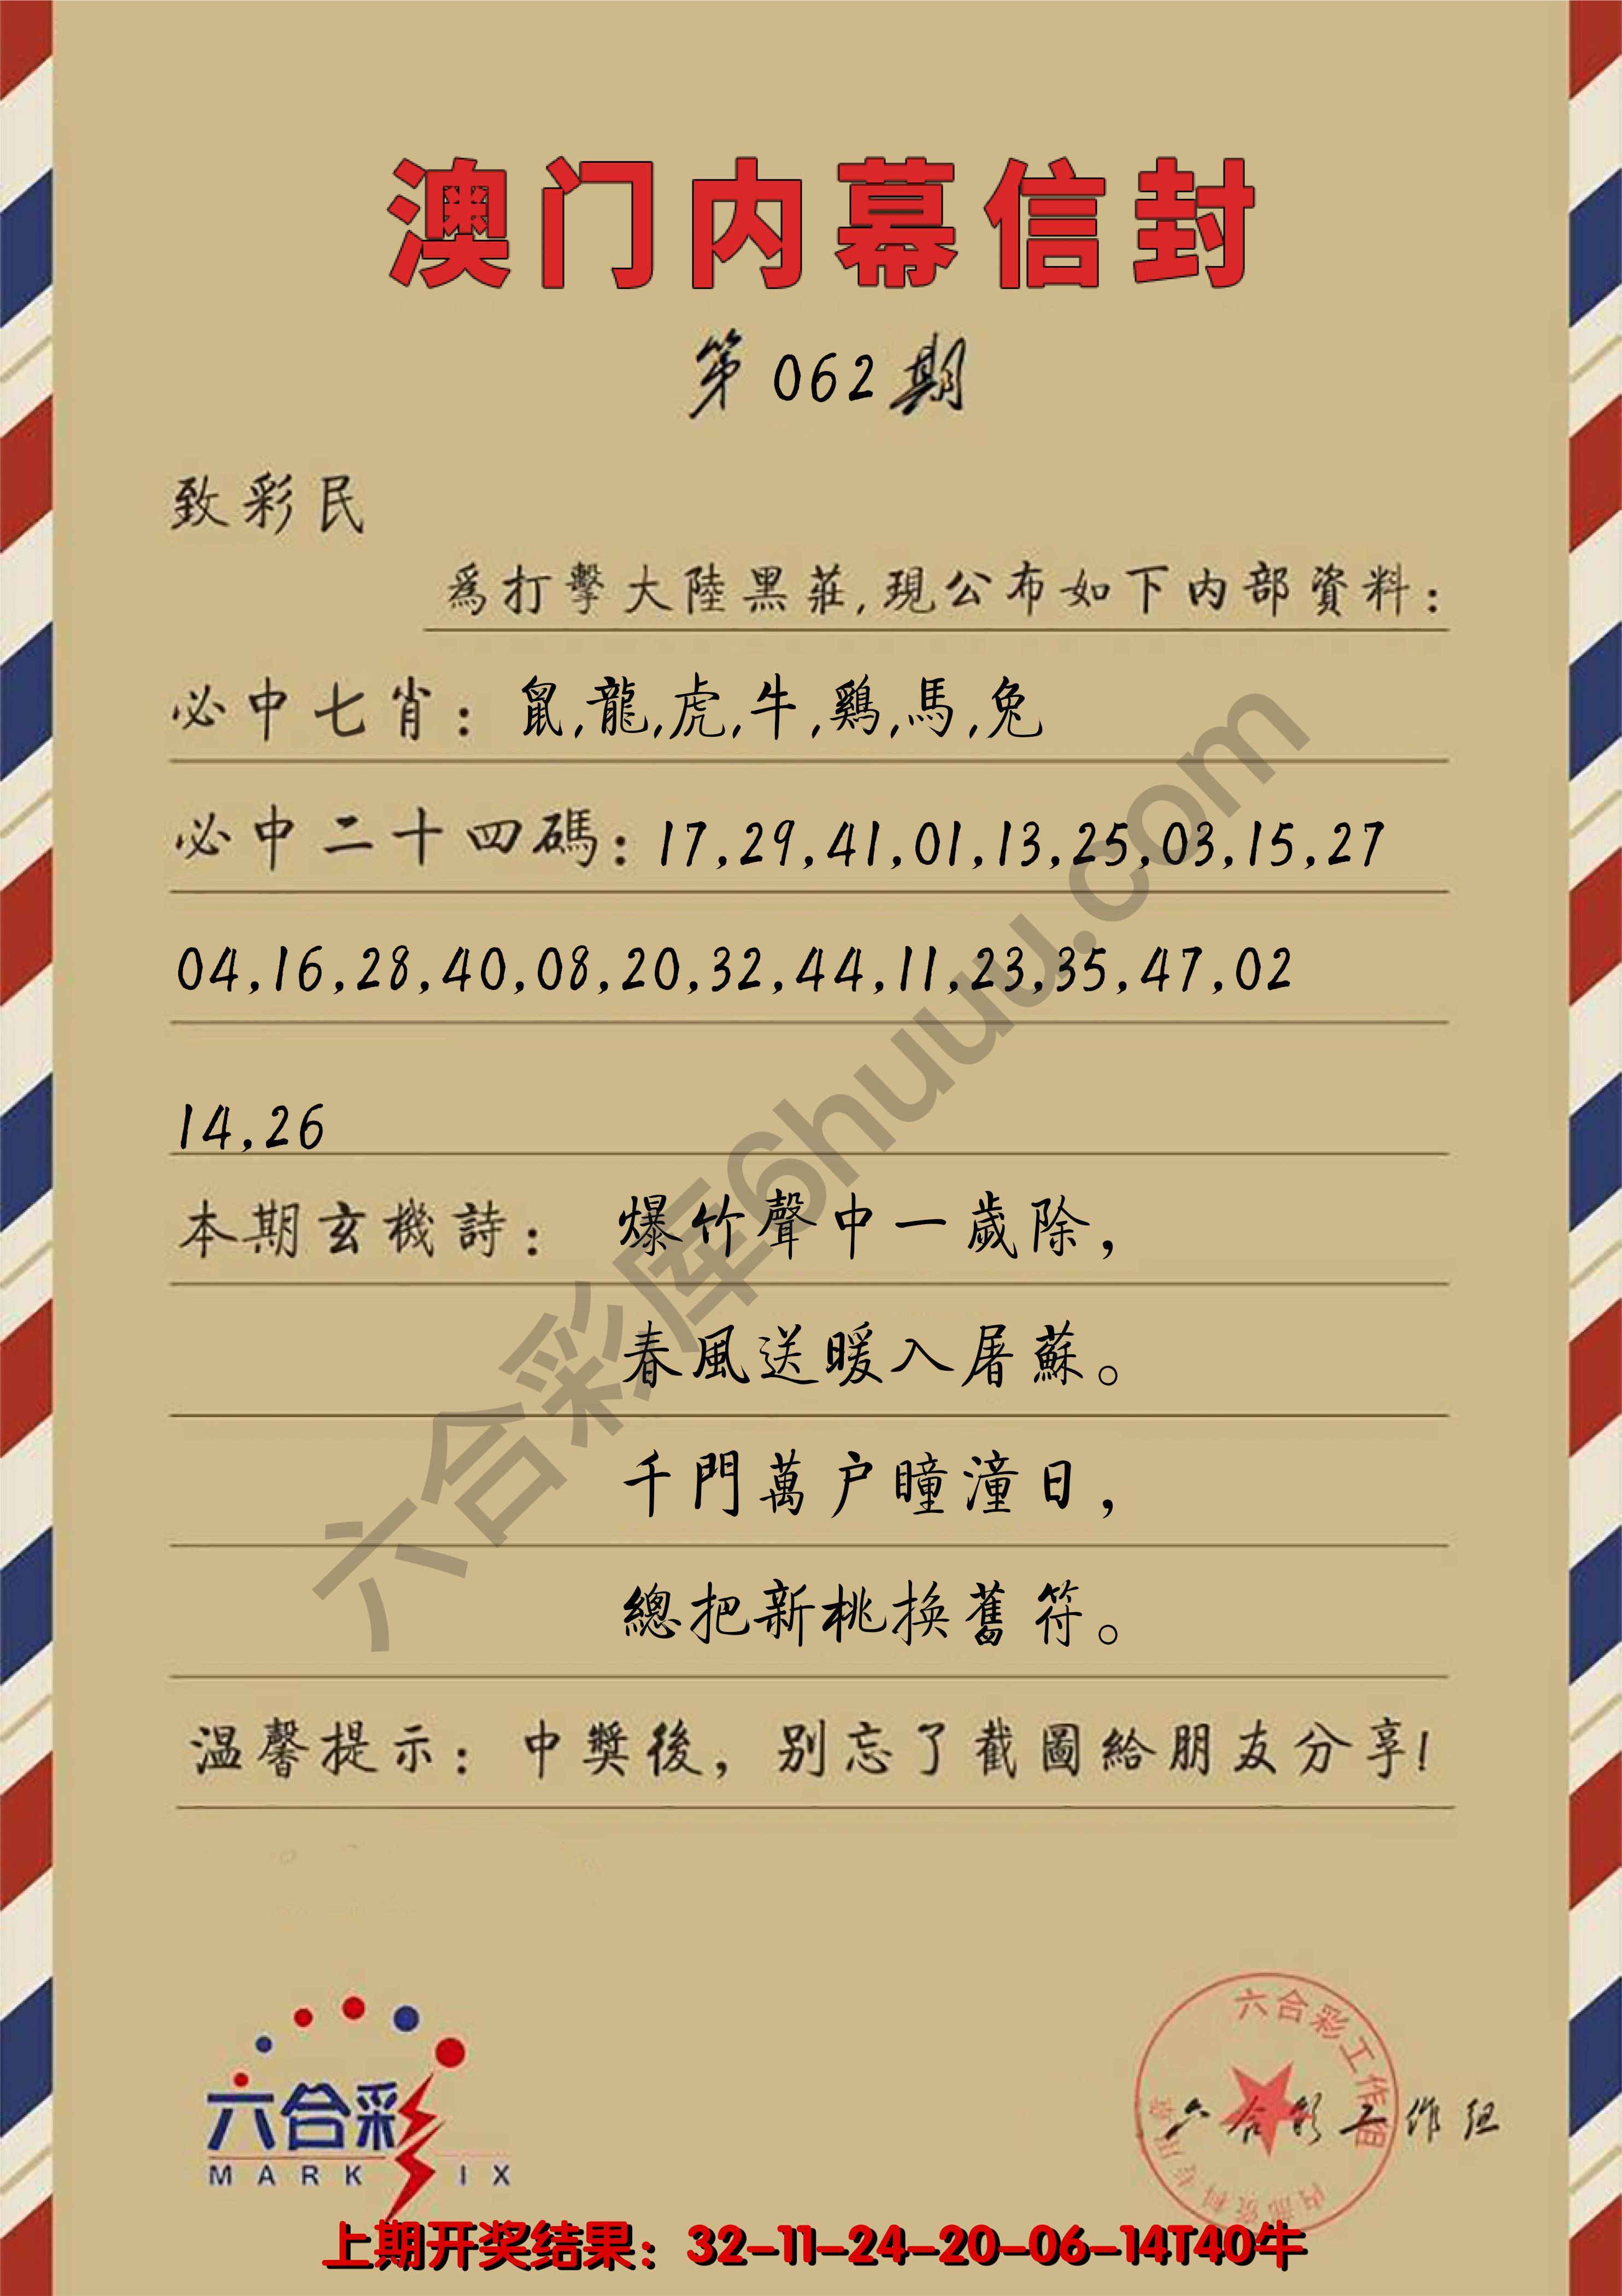 澳门内幕信封
第062期
致彩民
爲打擊大陸黑莊,現公布如下内部資料:
必中七肖: 鼠,龍,虎,牛,鷄,馬,兔
必中二十四碼: 17,29,41,01,13,25,03,15,27
04,16,28,40,08,20,32,44,11,23,35,47,02
14,26
本期玄機詩: 爆竹聲中一歲除,
春風送暖入屠蘇。
千門萬户瞳潼日,
總把新桃换舊符。
温馨提示: 中獎後, 别忘了截圖給朋友分享!
六合彩库6huuu.com
六合彩
MARK IX
六合彩工作组
内部资料专用章
六合彩工作组
上期开奖结果: 32-11-24-20-06-14T40牛